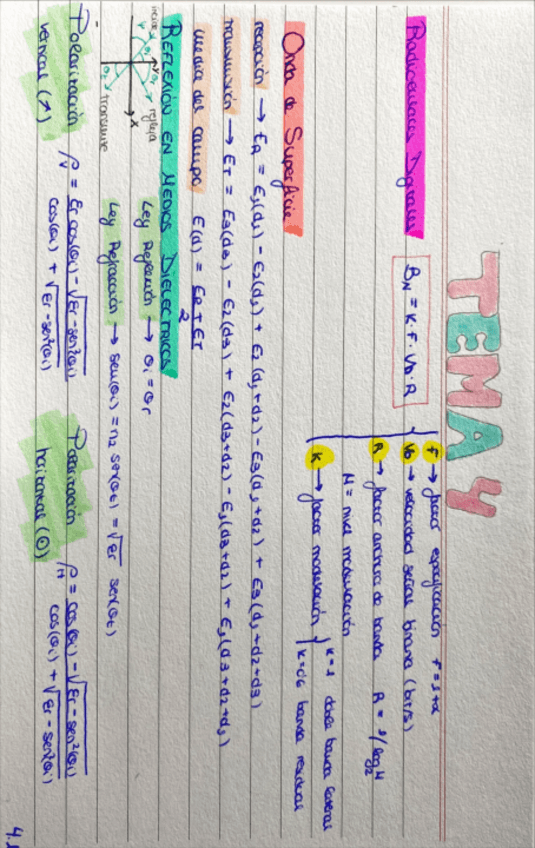 TEMA 4
Radioenlaces Digitales
BN = K · F · Vb · R
F → factor F = 1+α
Vb → velocidad señal binaria (bit/s)
R → factor anchura de banda R = 1/log2M
M = nivel modulación
K → factor modulación
K=1 doble banda lateral
K=0'6 banda residual
Onda de Superficie
recepción → ER = E1(d1) - E2(d1) + E2(d1+d2) - E3(d1+d2) + E3(d1+d2+d3)
transmisión → ET = E3(d3) - E2(d3) + E2(d3+d2) - E1(d3+d2) + E1(d3+d2+d1)
media del campo E(d) = ER+ET
2
REFLEXIÓN EN MEDIOS DIELECTRICOS
Ley Reflexión → θi = θr
Ley Refracción → sen(θi) = n2 sen(θt) = √εr sen(θt)
incide
refleja
transmite
θi
θr
θt
X
Polarización vertical (↗) ρV = εr cos(θi) - √εr-sen²(θi)
cos(θi) + √εr-sen²(θi)
Polarización horizontal (⊙) ρH = cos(θi) - √εr-sen²(θi)
cos(θi) + √εr-sen²(θi)
4.1